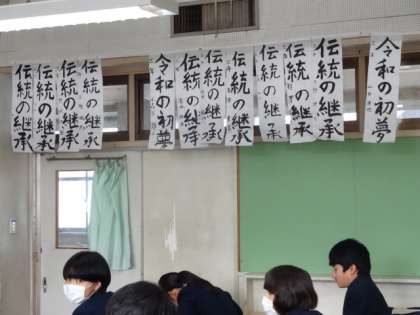 伝統の継承
伝統の継承
伝統の継承
伝統の継承
令和の初夢
伝統の継承
伝統の継承
伝統の継承
伝統の継承
伝統の継承
伝統の継承
令和の初夢
令和の初夢